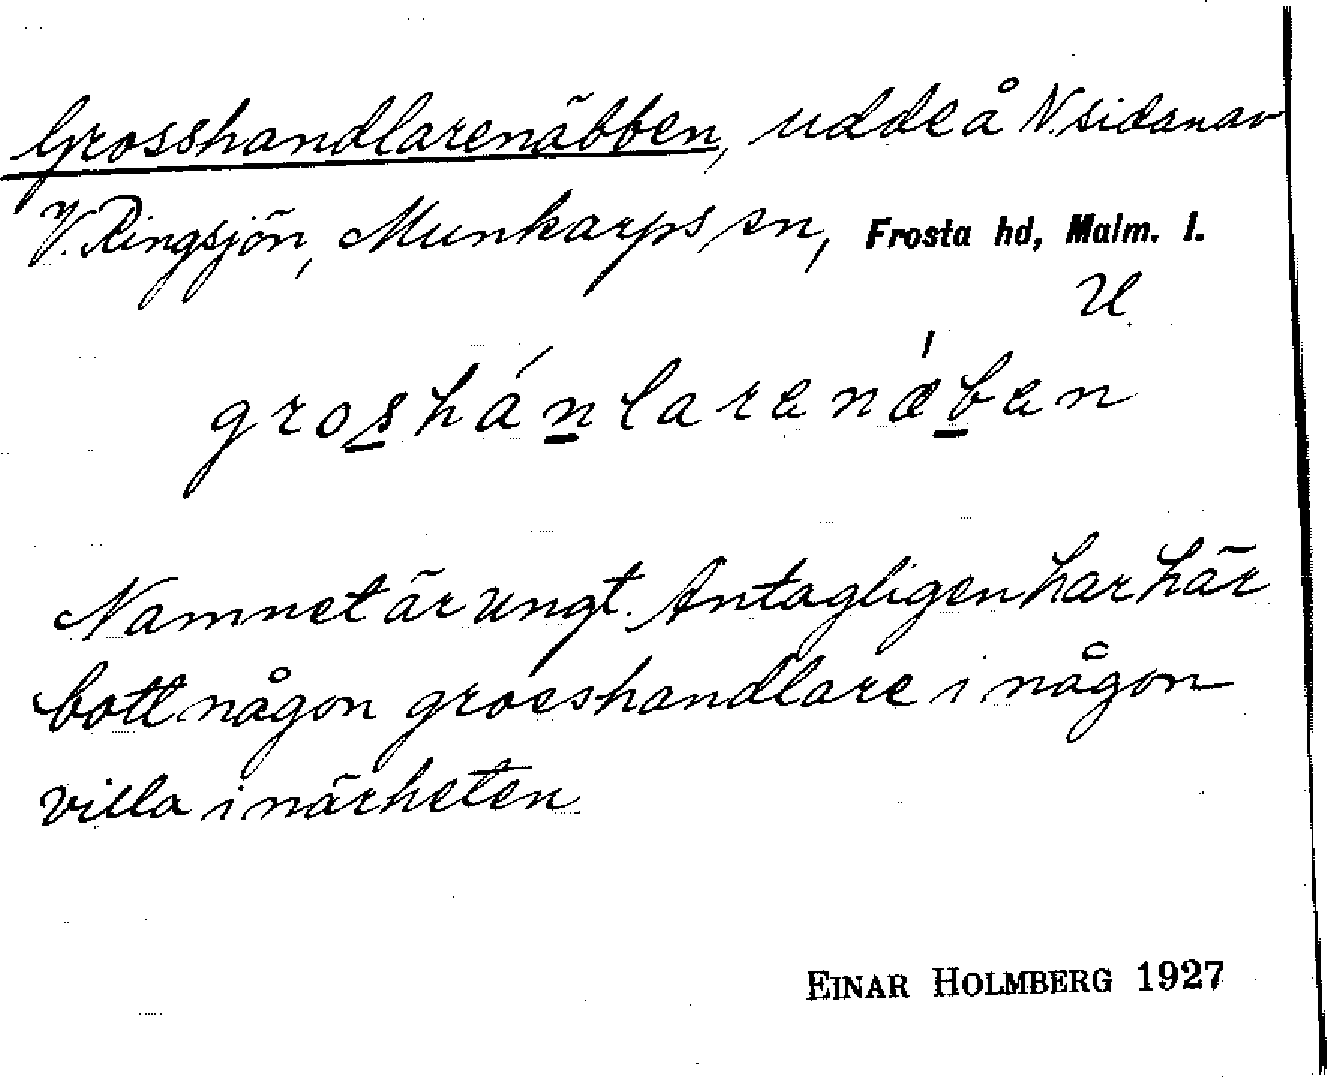 Grosshandlarenäbben, udde å N sidan av
V. Ringsjön, Munkarps sn, Frosta hd, Malm. l.
U
groshánlarenæben
Namnet är ungt. Antagligen har här
bott någon grosshandlare i någon
villa i närheten
EINAR HOLMBERG 1927